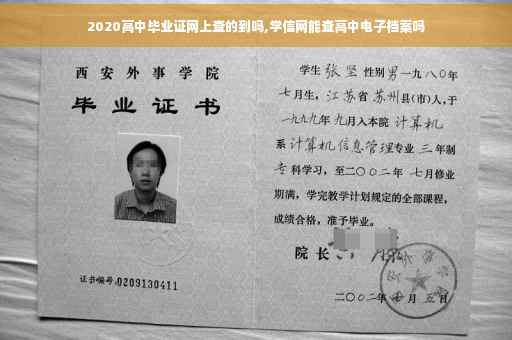 2020高中毕业证网上查的到吗,学信网能查高中电子档案吗
西安外事学院
毕业证书
证书编号:0209130411
学生 张坚 性别 男 一九八〇年
七月生, 江苏省 苏州县(市)人,于
一九九九年 九月入本院 计算机
系 计算机信息管理专业 三 年制
专科学习, 至二〇〇二年 七月修业
期满, 学完教学计划规定的全部课程,
成绩合格, 准予毕业。
院长
二〇〇二年 月 五日